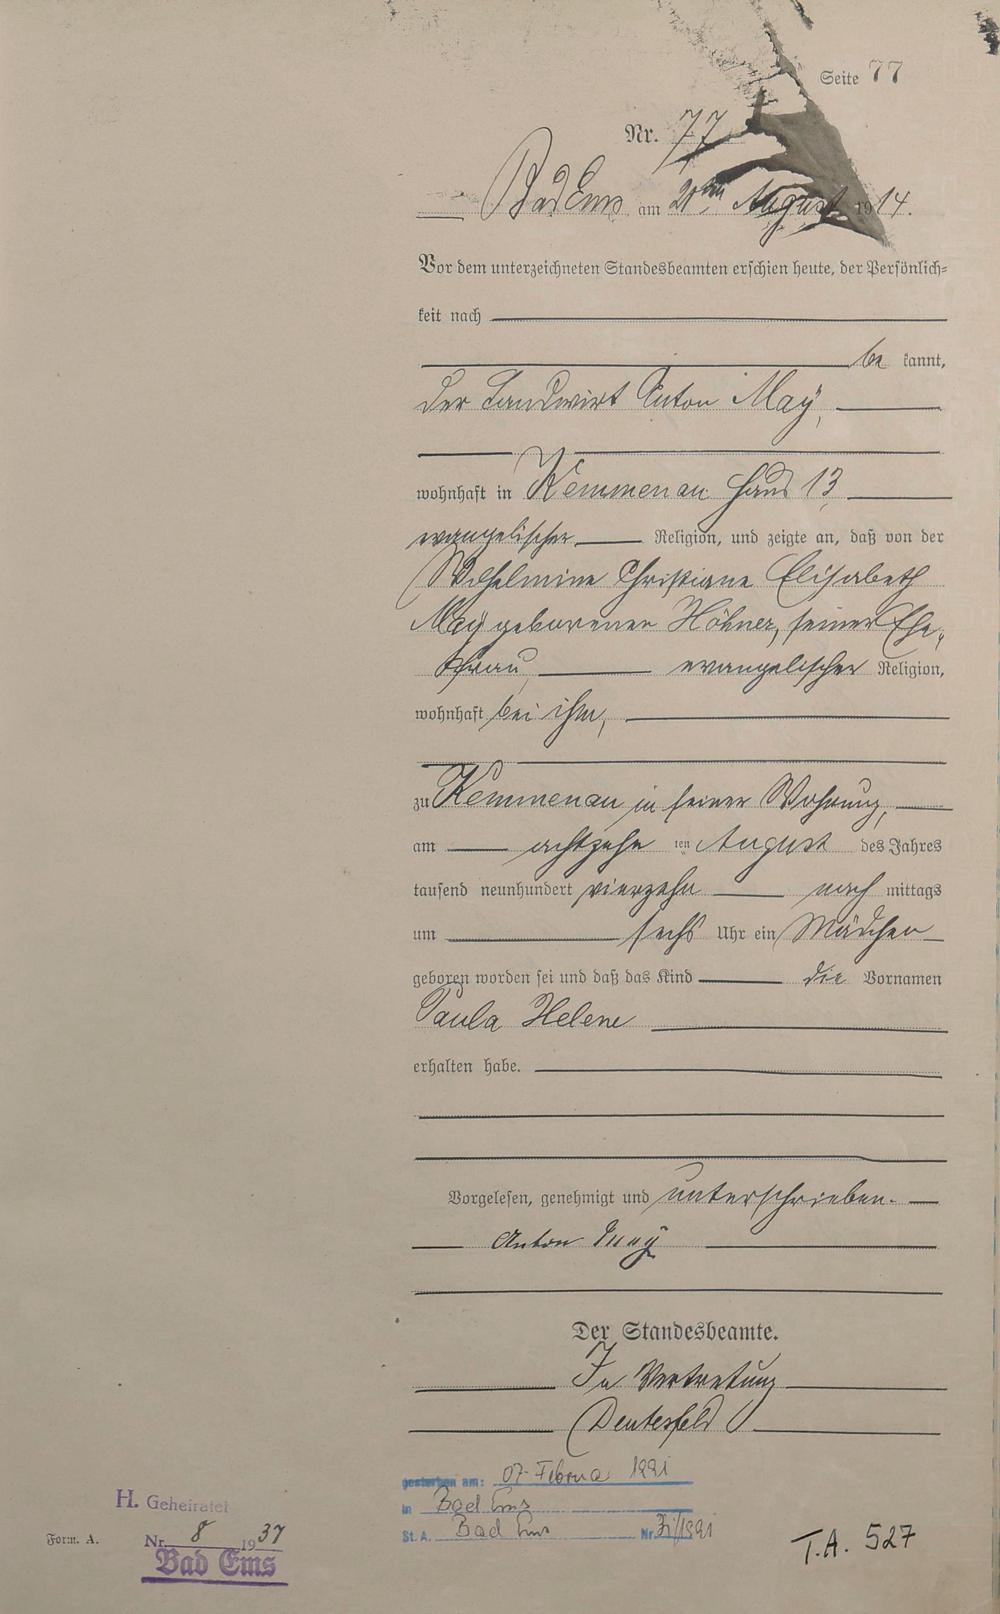 Seite 77
Nr. 77
Bad Ems am 20ten August 1914.
Vor dem unterzeichneten Standesbeamten erschien heute, der Persönlich-
keit nach
be kannt,
der Landwirt Anton Maÿ,
wohnhaft in Kemmenau Haus 13,
evangelischer Religion, und zeigte an, daß von der
Wilhelmine Christiane Elisabeth
Maÿ geborenen Höhner, seiner Ehe-
frau, evangelischer Religion,
wohnhaft bei ihm,
zu Kemmenau in seiner Wohnung,
am achtzehn ten August des Jahres
tausend neunhundert vierzehn nach mittags
um sechs Uhr ein Mädchen
geboren worden sei und daß das Kind die Vornamen
Paula Helene
erhalten habe.
Vorgelesen, genehmigt und unterschrieben.
Anton Maÿ
Der Standesbeamte.
In Vertretung
gestorben am: 07. Februa 1991
in Bad Ems
St. A. Bad Ems Nr. /1991
H. Geheiratet
Form. A. Nr. 8 1937
Bad Ems
T.A. 527